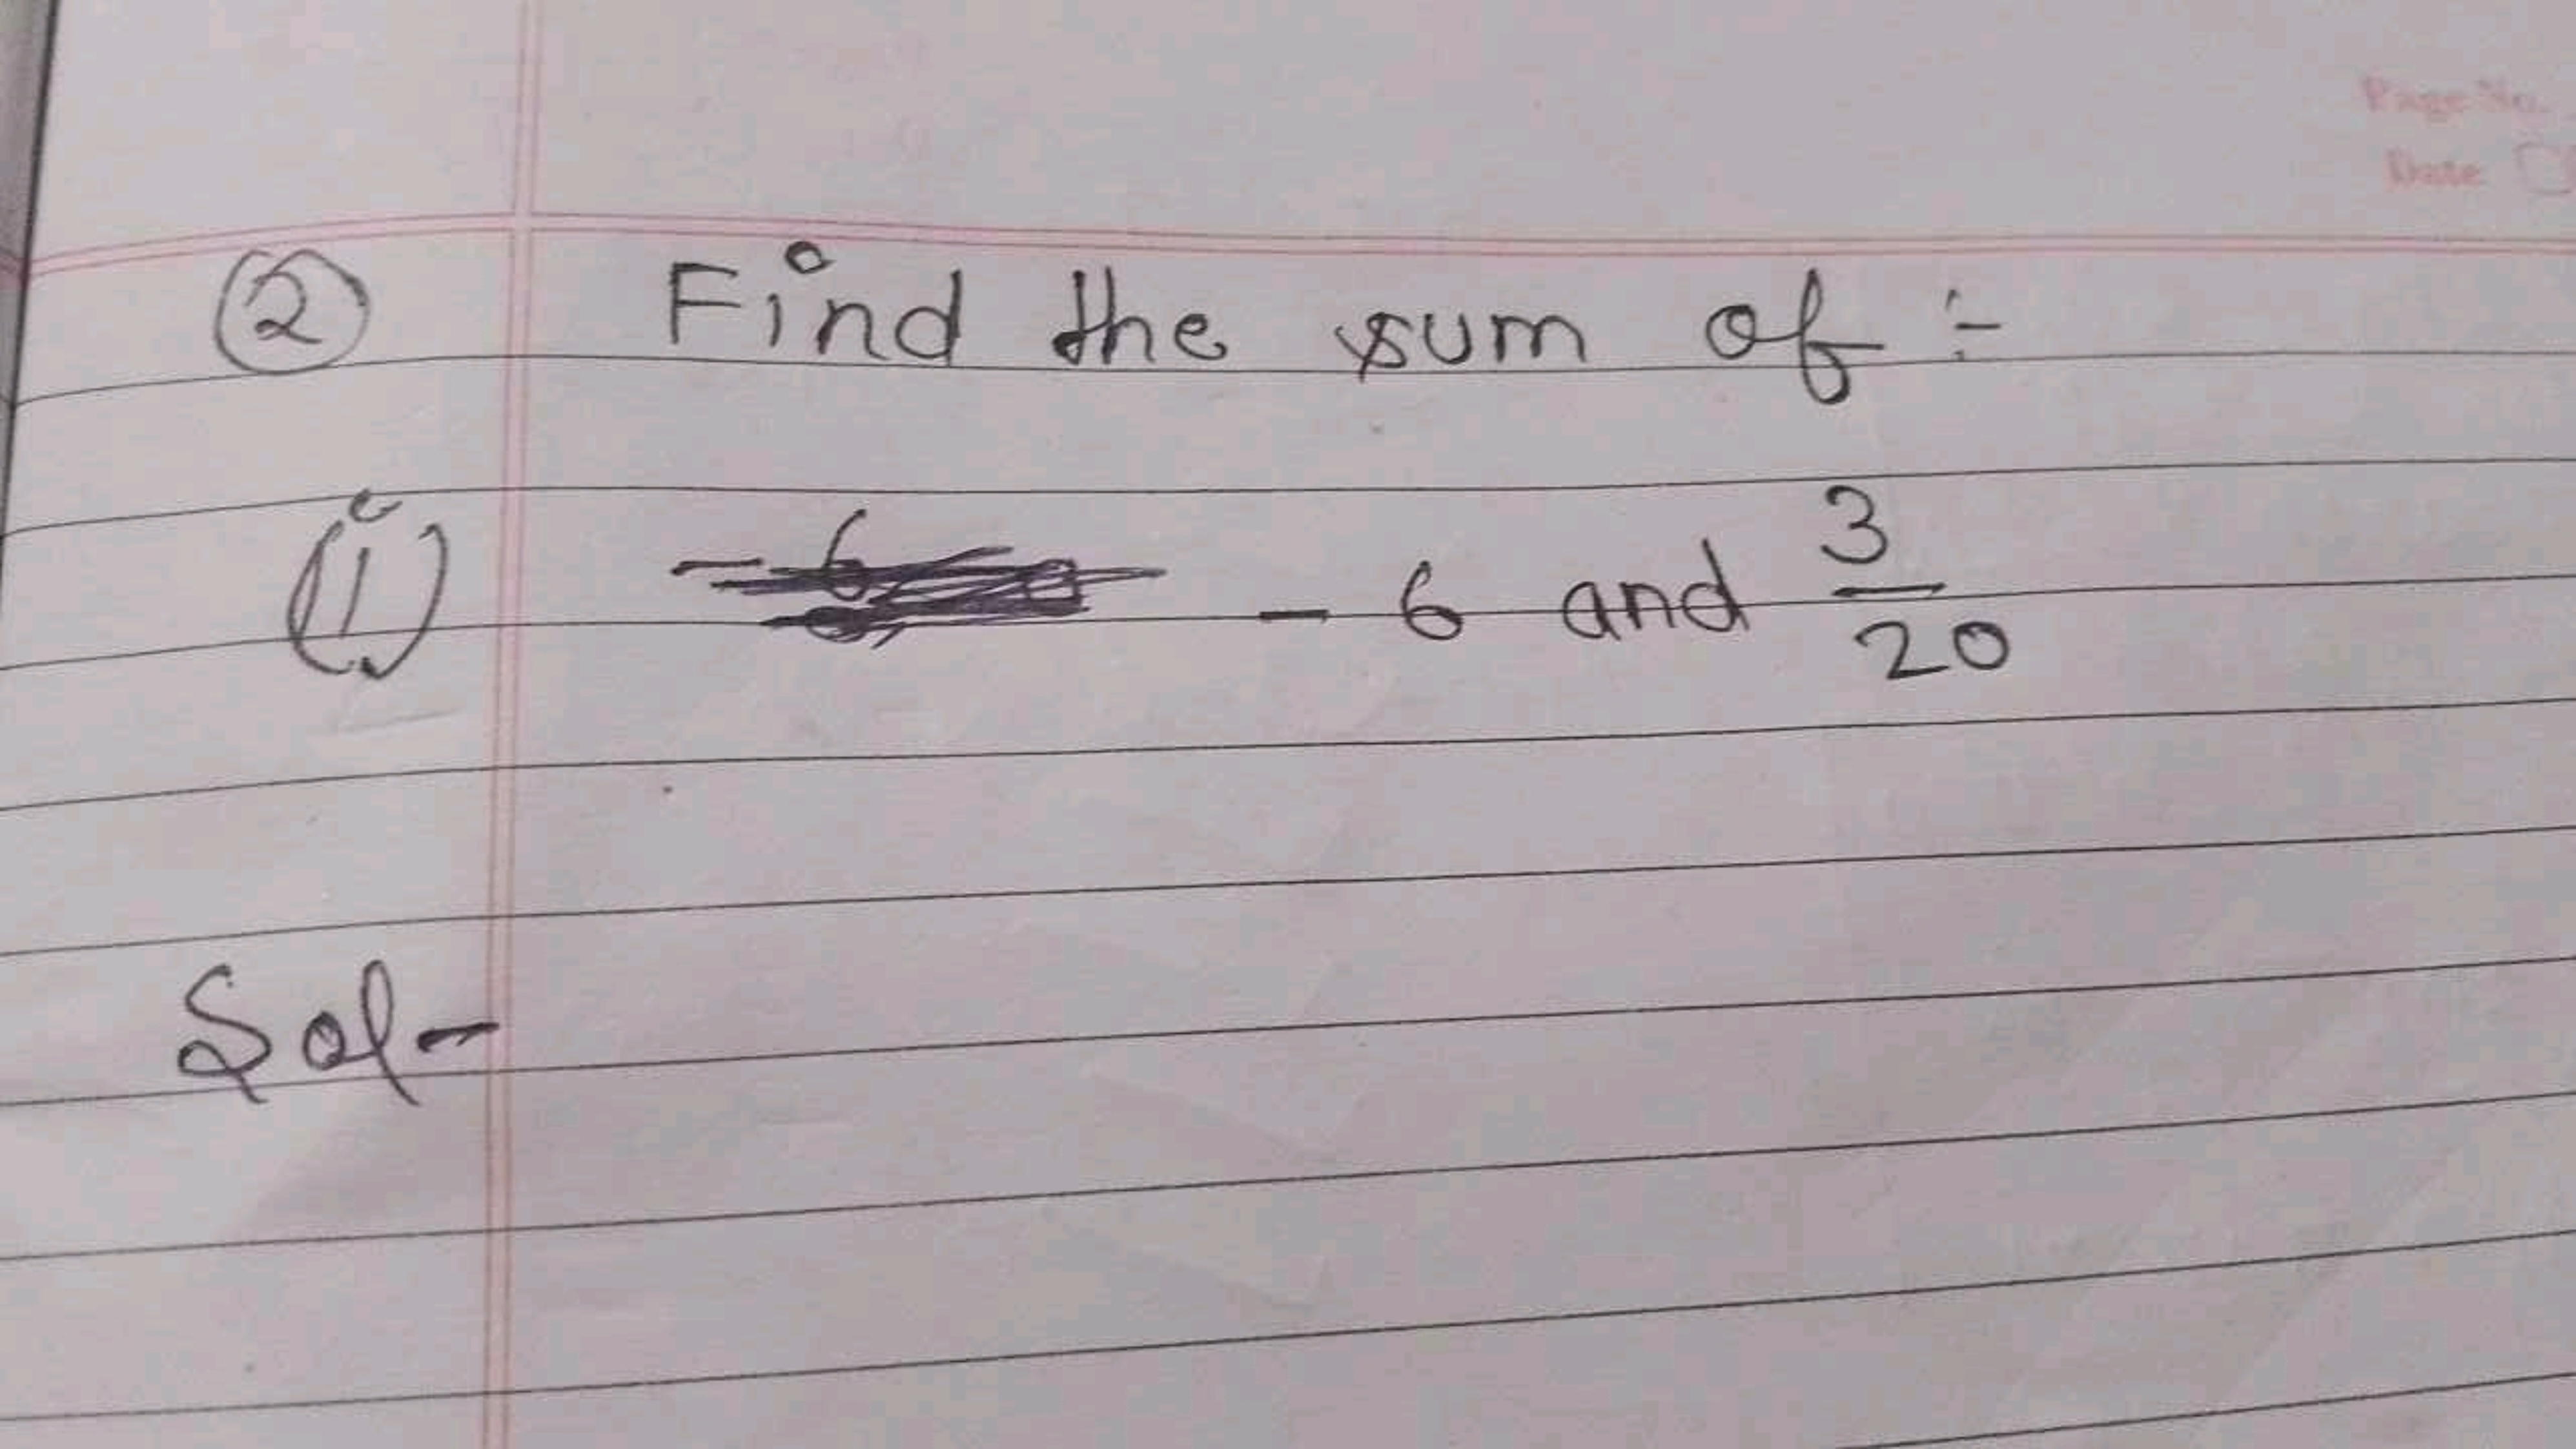 Page No.
Date
② Find the sum of :-
(i) - 6 and 3/20
Sol-